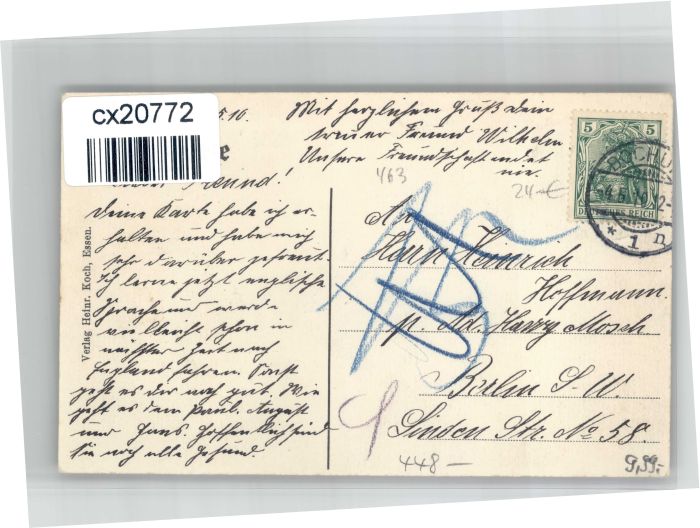 cx20772
5.10.
Mit herzlichem Gruß Dein
treuer Freund Wilhelm
Unsere Freundschaft endet
nie.
Freund!
Deine Karte habe ich er-
halten und habe mich
sehr darüber gefreut.
Ich lerne jetzt englische
Sprache und werde
vielleicht schon in
nächster Zeit nach
England fahren. Sonst
geht es dir noch gut. Wie
geht es dem Paul, August
und Hans. Hoffentlich sind
sie noch alle gesund.
Verlag Heinr. Koch, Essen.
463
24-€
5 5
DEUTSCHES REICH
BOCHUM
* 1 n
An
Herrn Heinrich
Hoffmann.
p. Ad. Harry Mosch
Berlin S. W.
Linden Str. No 58.
448-
9,99-